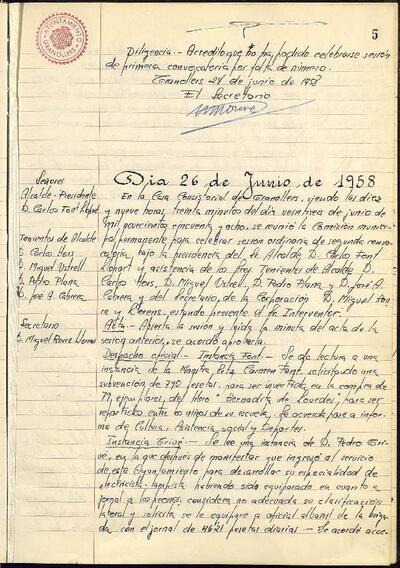 AYUNTAMIENTO
GRANOLLERS
5
Diligencia.- Acredito que no ha podido celebrarse sesión
de primera convocatoria por falta de número.
Granollers 24 de junio de 1958
El Secretario
Día 26 de Junio de 1958
Señores
Alcalde-Presidente
D. Carlos Font Llopart
Tenientes de Alcalde
D. Carlos Hors
D. Miguel Ustrell
D. Pedro Plana
D. José A. Cabrera
Secretario
D. Miguel Roure Llorens
En la Casa Consistorial de Granollers, siendo las diez
y nueve horas treinta minutos del día veintiseis de junio de
mil novecientos cincuenta y ocho, se reunió la Comisión munici-
pal permanente para celebrar sesión ordinaria de segunda convo-
catoria, bajo la presidencia del Sr. Alcalde D. Carlos Font
Llopart y asistencia de los Srs. Tenientes de Alcalde D.
Carlos Hors, D. Miguel Ustrell, D. Pedro Plana y D. José A.
Cabrera y del Secretario de la Corporación D. Miguel Rou-
re Llorens, estando presente el Sr. Interventor.
Acta.- Abierta la sesión y leída la minuta del acta de la
sesión anterior, se acordó aprobarla.
Despacho oficial.- Instancia Font.- Se da lectura a una
instancia de la Maestra Srta. Carmen Font, solicitando una
subvención de 790 pesetas, para ser invertida en la compra de
79 ejemplares del libro "Bernardita de Lourdes" para ser
repartidos entre los niños de su escuela. Se acuerda pase a infor-
me de Cultura, Asistencia social y Deportes.
Instancia Trivé.- Se lee una instancia de D. Pedro Tri-
vé, en la que después de manifestar que ingresó al servicio
de este Ayuntamiento para desarrollar su especialidad de
electricista-lampista habiendo sido equiparado en cuanto a
jornal a los peones, considera no adecuada su clasificación
laboral y solicita se le equipare a oficial albañil de la briga-
da con el jornal de 46'21 pesetas diarias.- Se acordó acce-